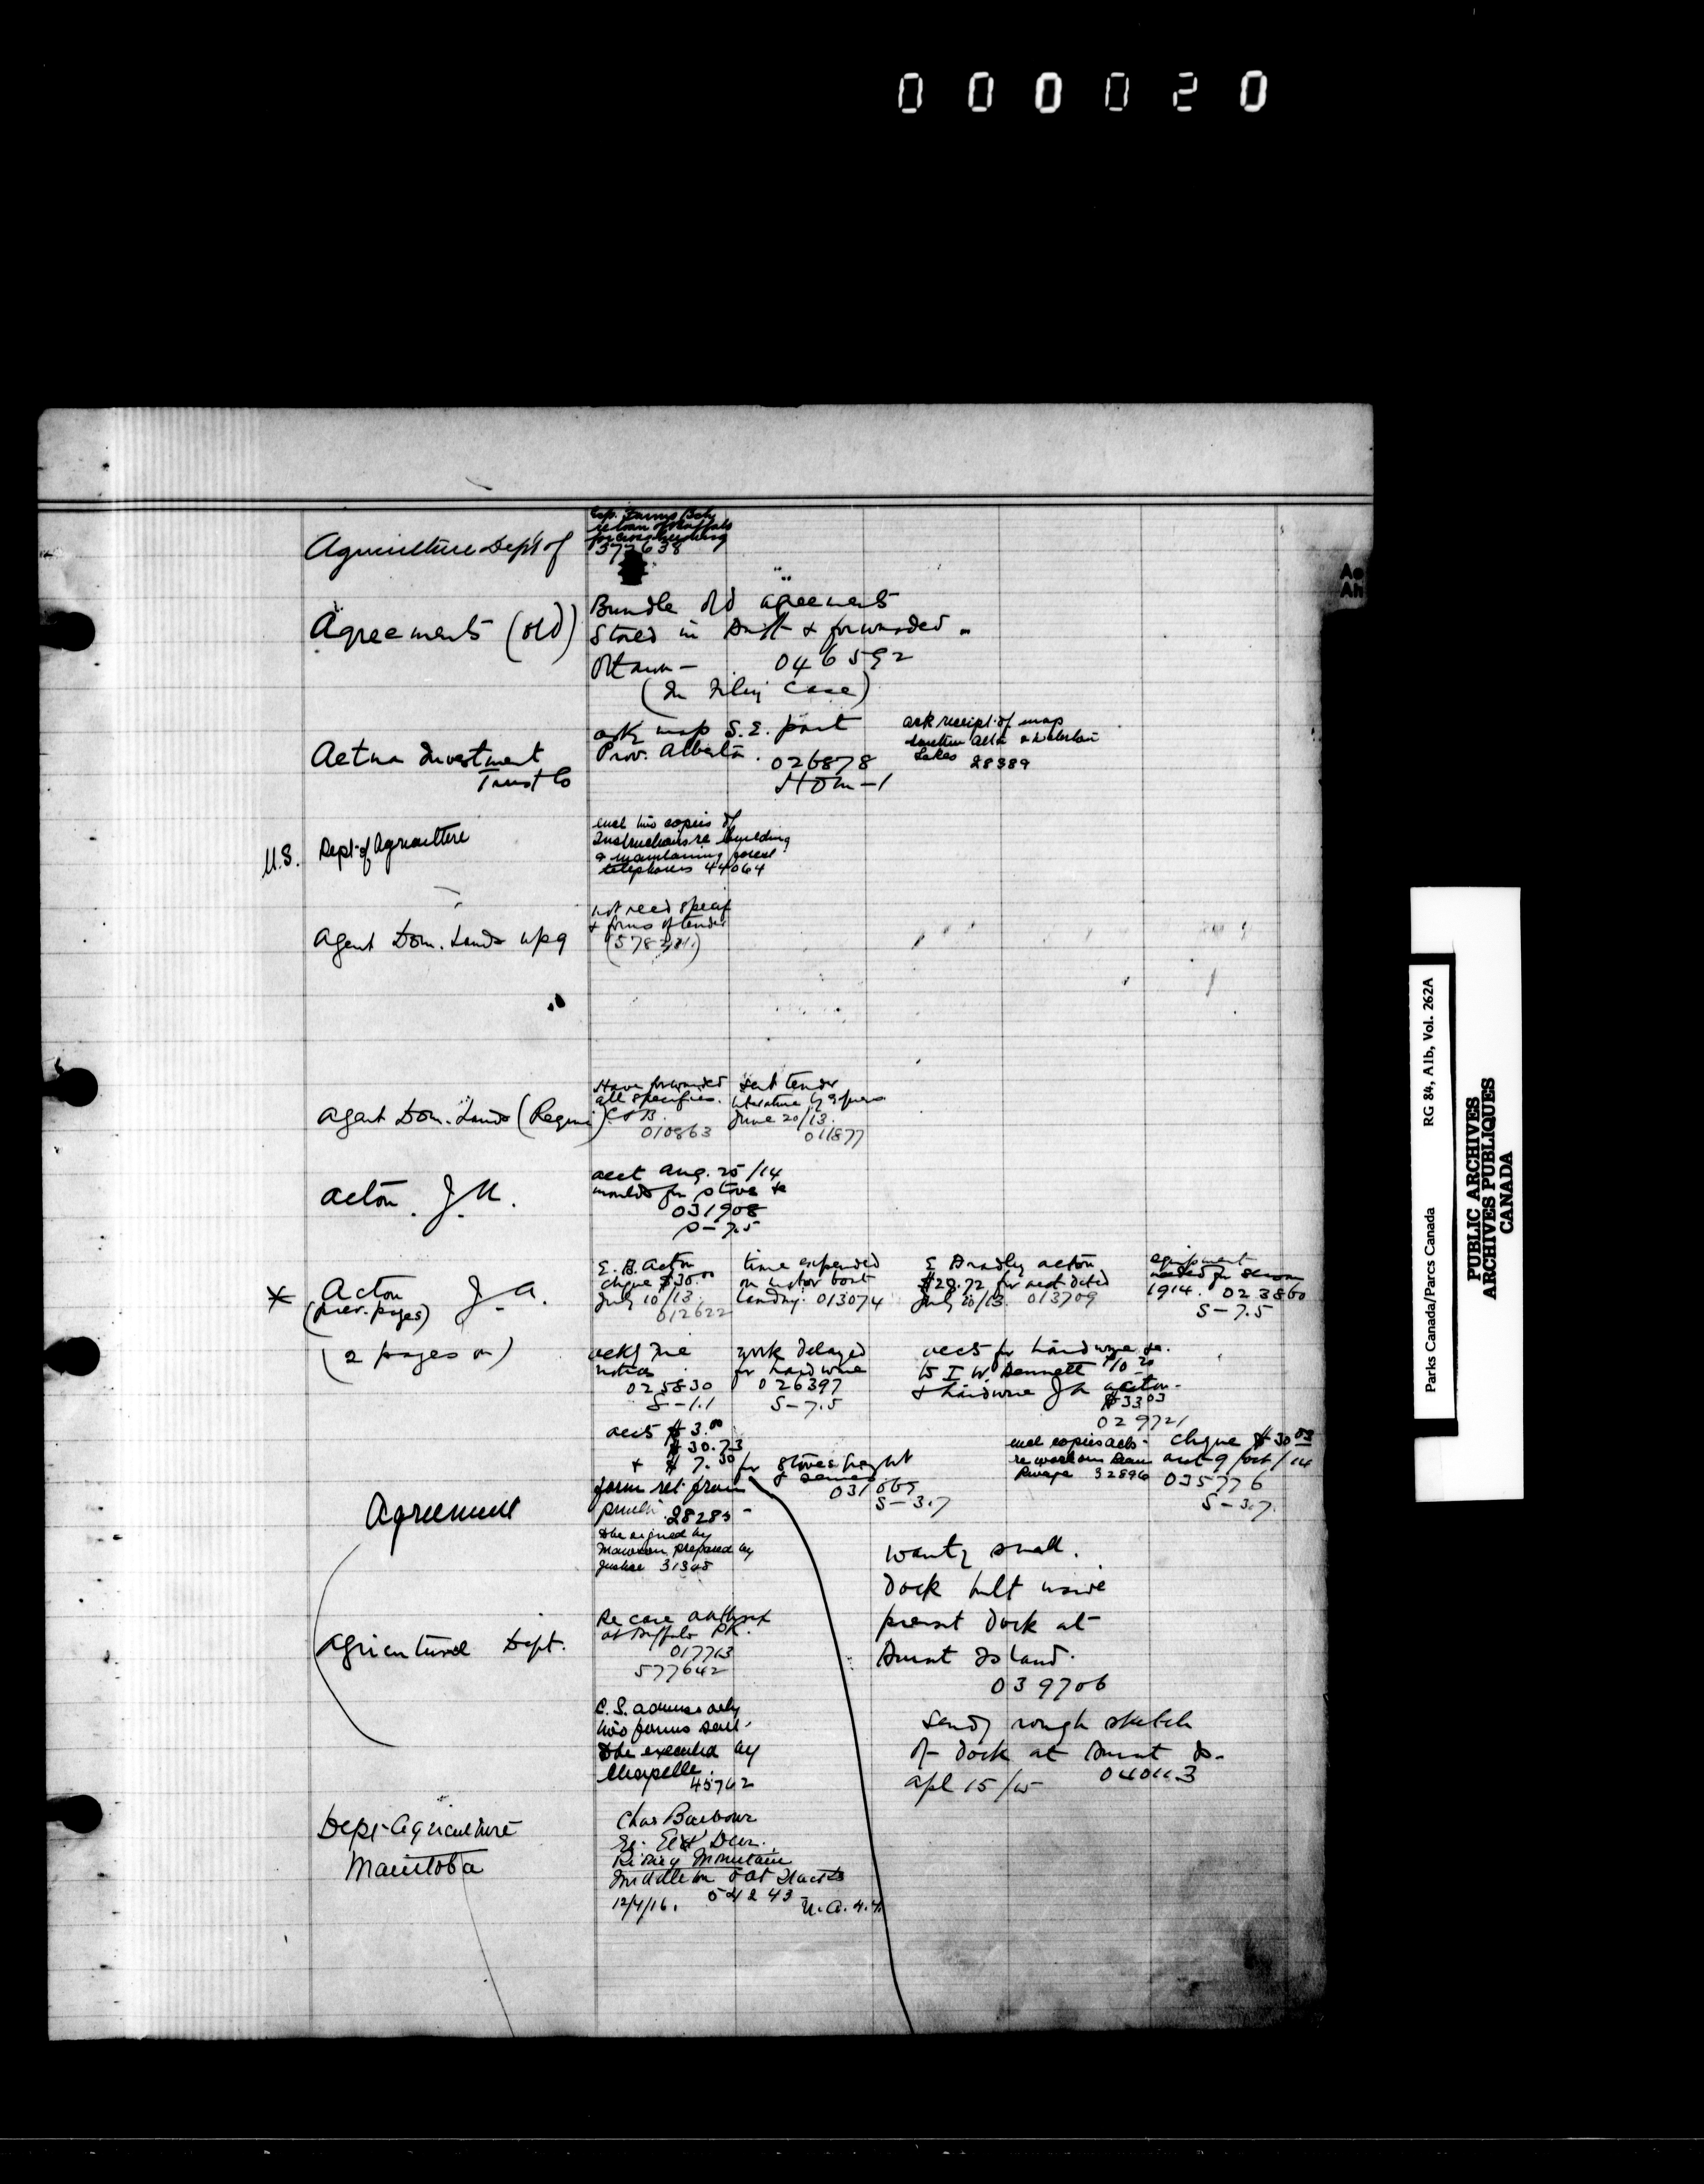 000020
Agriculture Dept of
Exp. Farms Bch
re loan of buffalo
for cross breeding
373638
Agreements (old)
Bundle old agreements
Stored in & forwarded
Ottawa —
046592
(In Filing Case)
Aetna Investment
Trust Co
ask map S.E. part
Prov. Alberta.
026878
ack receipt of map
Southern Alta & Waterton
Lakes 28389
U.S. Dept of Agriculture
encl two copies of
Instructions re building
& maintaining forest
telephones 44064
Agent Dom. Lands Wpg
not recd specif
& forms of tender
Agent Dom. Lands (Regina)
Have forwarded
all specifics.
010863
Sent tender
literature
June 20/13.
011877
Acton J.A.
acct Aug. 25/14
moulds for stove &c
031908
S-7.5
* Acton J.A.
(prev. pages)
(2 pages on)
E. B. Acton
chque $30.00
July 10/13.
012622
time expended
on motor boat
landing. 013074
E Bradley Acton
$28.72 for acct dated
July 10/13. 013709
equipment
needed for season
1914. 023860
S-7.5
ackg Fire
notices
025830
S-1.1
work delayed
for hardware
026397
S-7.5
accts for hardware &c.
to I W. Bennett
& hardware J A Acton -
$33.03
029721
accts $3.00
$30.73
+ $7.50 for stoves freight
S-3.7
encl copies accts
re work on Beau
Rivage 32896
chque $30.03
acct 9 Oct/14
035776
S-3.7.
Agreement
form ret from
28285
To be signed by
Mawson prepared by
Justice 31305
Agricultural Dept.
Re case anthrax
at Buffalo Pk.
017713
577642
C.S. advises only
two forms sent
To be executed by
Chapelle.
45762
wants small
dock built inside
present dock at
Island.
039706
Sends rough sketch
of dock at Is.
Apl 15/15 040113
Dept Agriculture
Manitoba
Chas Barbour
Re: Elk Deer.
Riding Mountain
12/4/16. 54243
Ae
Ah
Parks Canada/Parcs Canada RG 84, A1b, Vol. 262A
PUBLIC ARCHIVES
ARCHIVES PUBLIQUES
CANADA